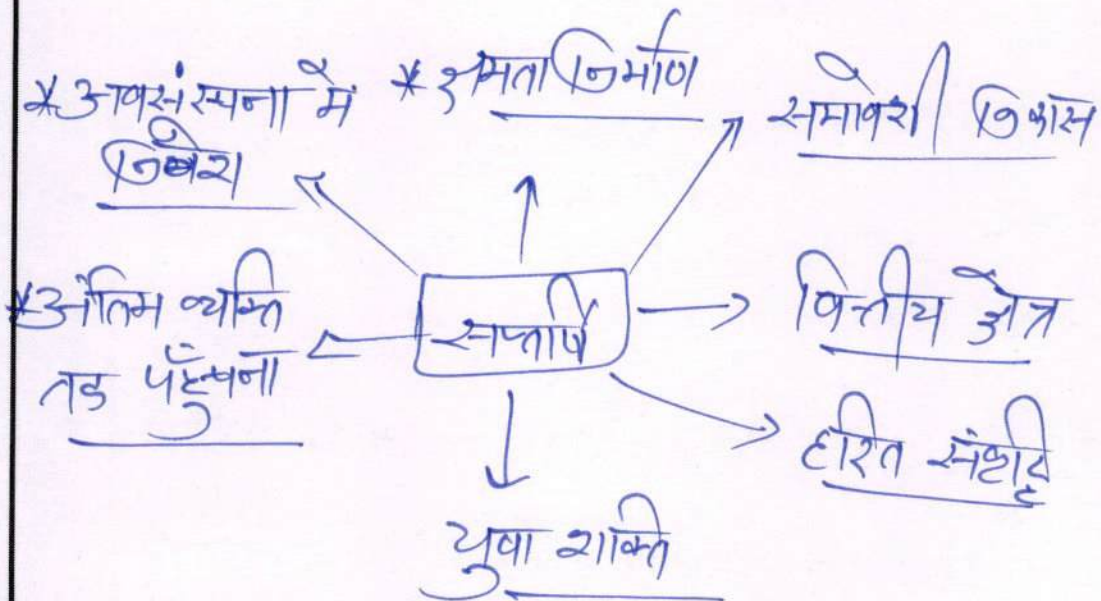 *अवसंरचना में
निवेश
*क्षमता निर्माण
समावेशी विकास
*अंतिम व्यक्ति
तक पहुँचना
सप्तर्षि
वित्तीय क्षेत्र
हरित संवृद्धि
युवा शक्ति